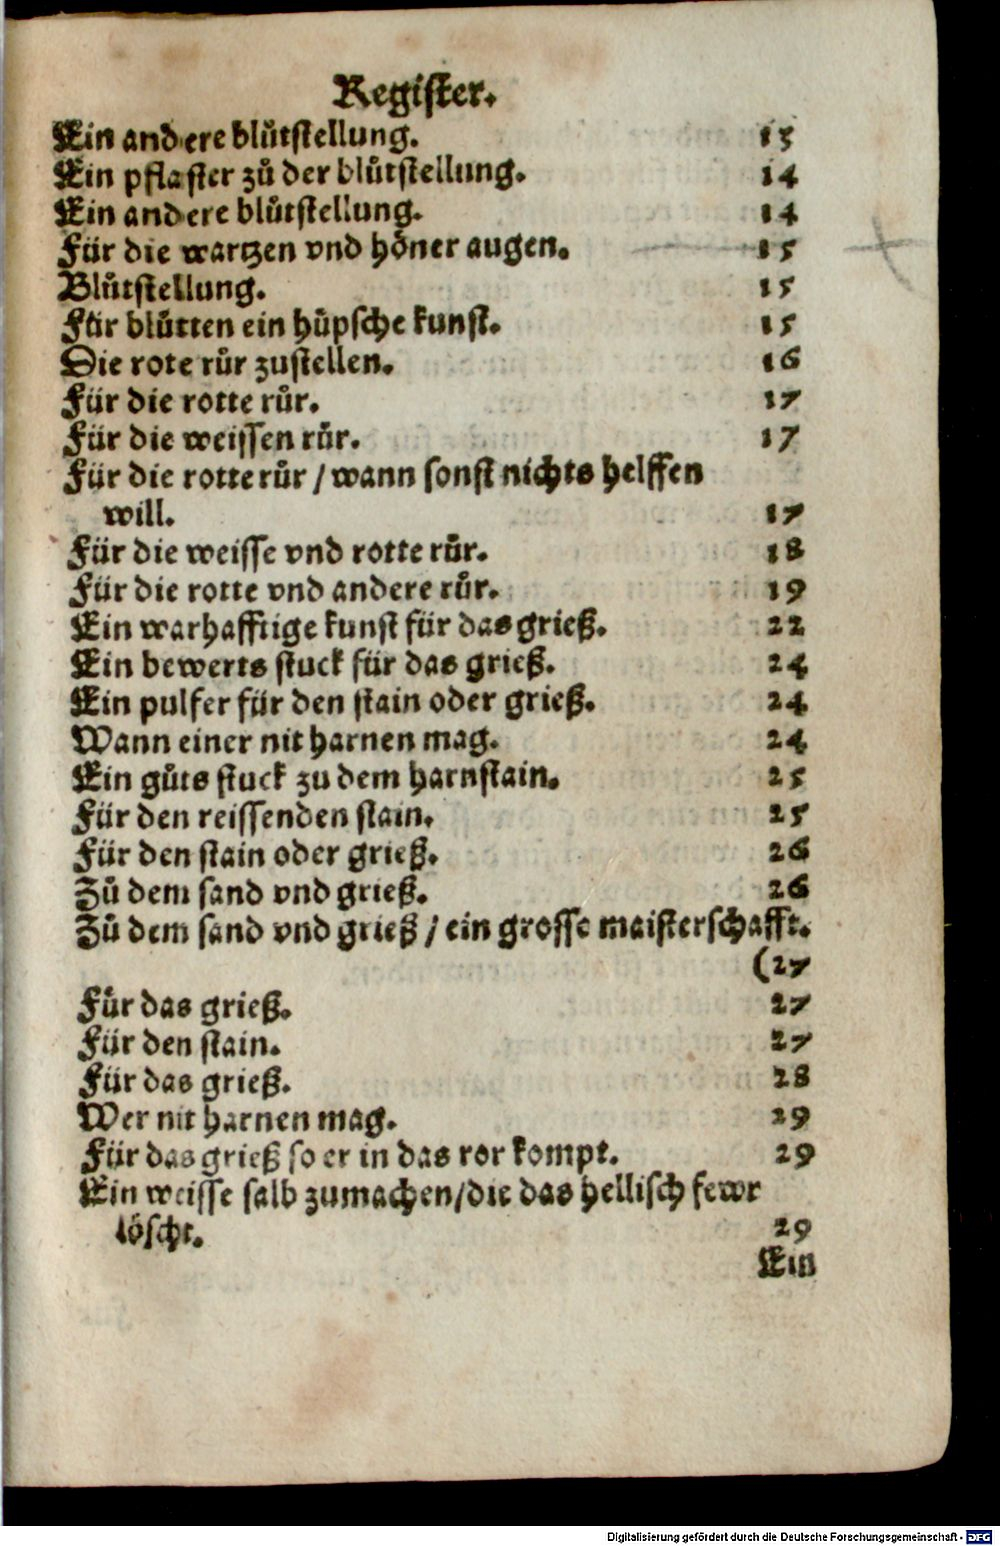 Register.
Ein andere blůtstellung. 15
Ein pflaster zů der blůtstellung. 14
Ein andere blůtstellung. 14
Für die wartzen vnd höner augen. 15
Blůtstellung. 15
Für blůtten ein hüpsche kunst. 15
Die rote růr zustellen. 16
Für die rotte růr. 17
Für die weissen růr. 17
Für die rotte růr / wann sonst nichts helffen
will. 17
Für die weisse vnd rotte růr. 18
Für die rotte vnd andere růr. 19
Ein warhafftige kunst für das grieß. 22
Ein bewerts stuck für das grieß. 24
Ein pulfer für den stain oder grieß. 24
Wann einer nit harnen mag. 24
Ein gůts stuck zu dem harnstain. 25
Für den reissenden stain. 25
Für den stain oder grieß. 26
Zů dem sand vnd grieß. 26
Zů dem sand vnd grieß / ein grosse maisterschafft.
(27
Für das grieß. 27
Für den stain. 27
Für das grieß. 28
Wer nit harnen mag. 29
Für das grieß so er in das ror kompt. 29
Ein weisse salb zumachen/die das hellisch fewr
löscht. 29
Ein
Digitalisierung gefördert durch die Deutsche Forschungsgemeinschaft - DFG